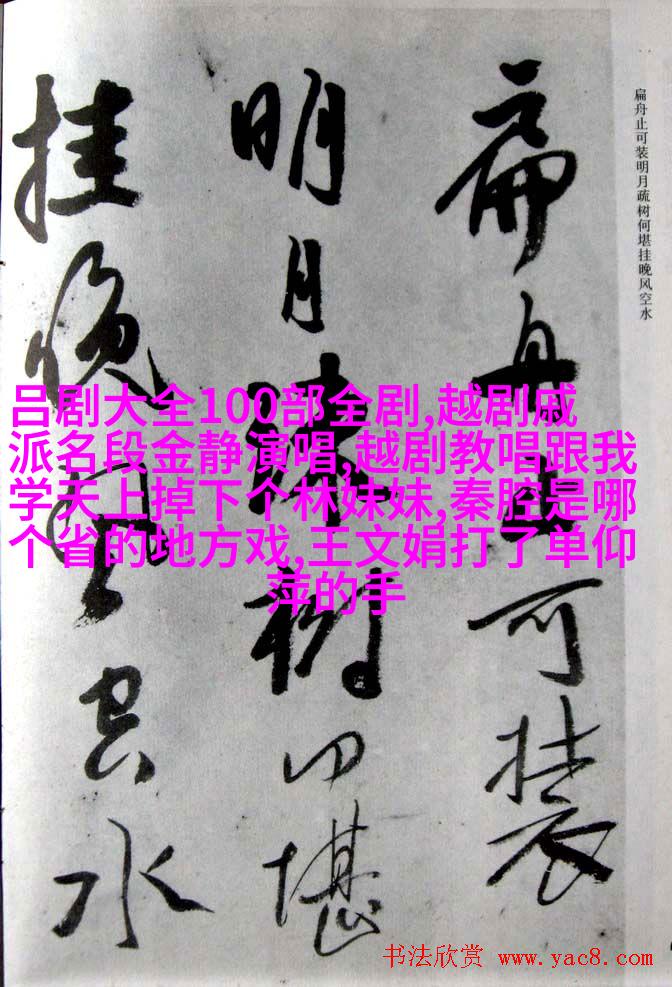 扁舟止可装
明月疏树何堪
挂晚风空水
扁舟止可装明月疏树何堪挂晚风空水
吕剧大全100部全剧,越剧戚
派名段金静演唱,越剧教唱跟我
学天上掉下个林妹妹,秦腔是哪
个省的地方戏,王文娟打了单仰
萍的手
书法欣赏 www.yac8.com